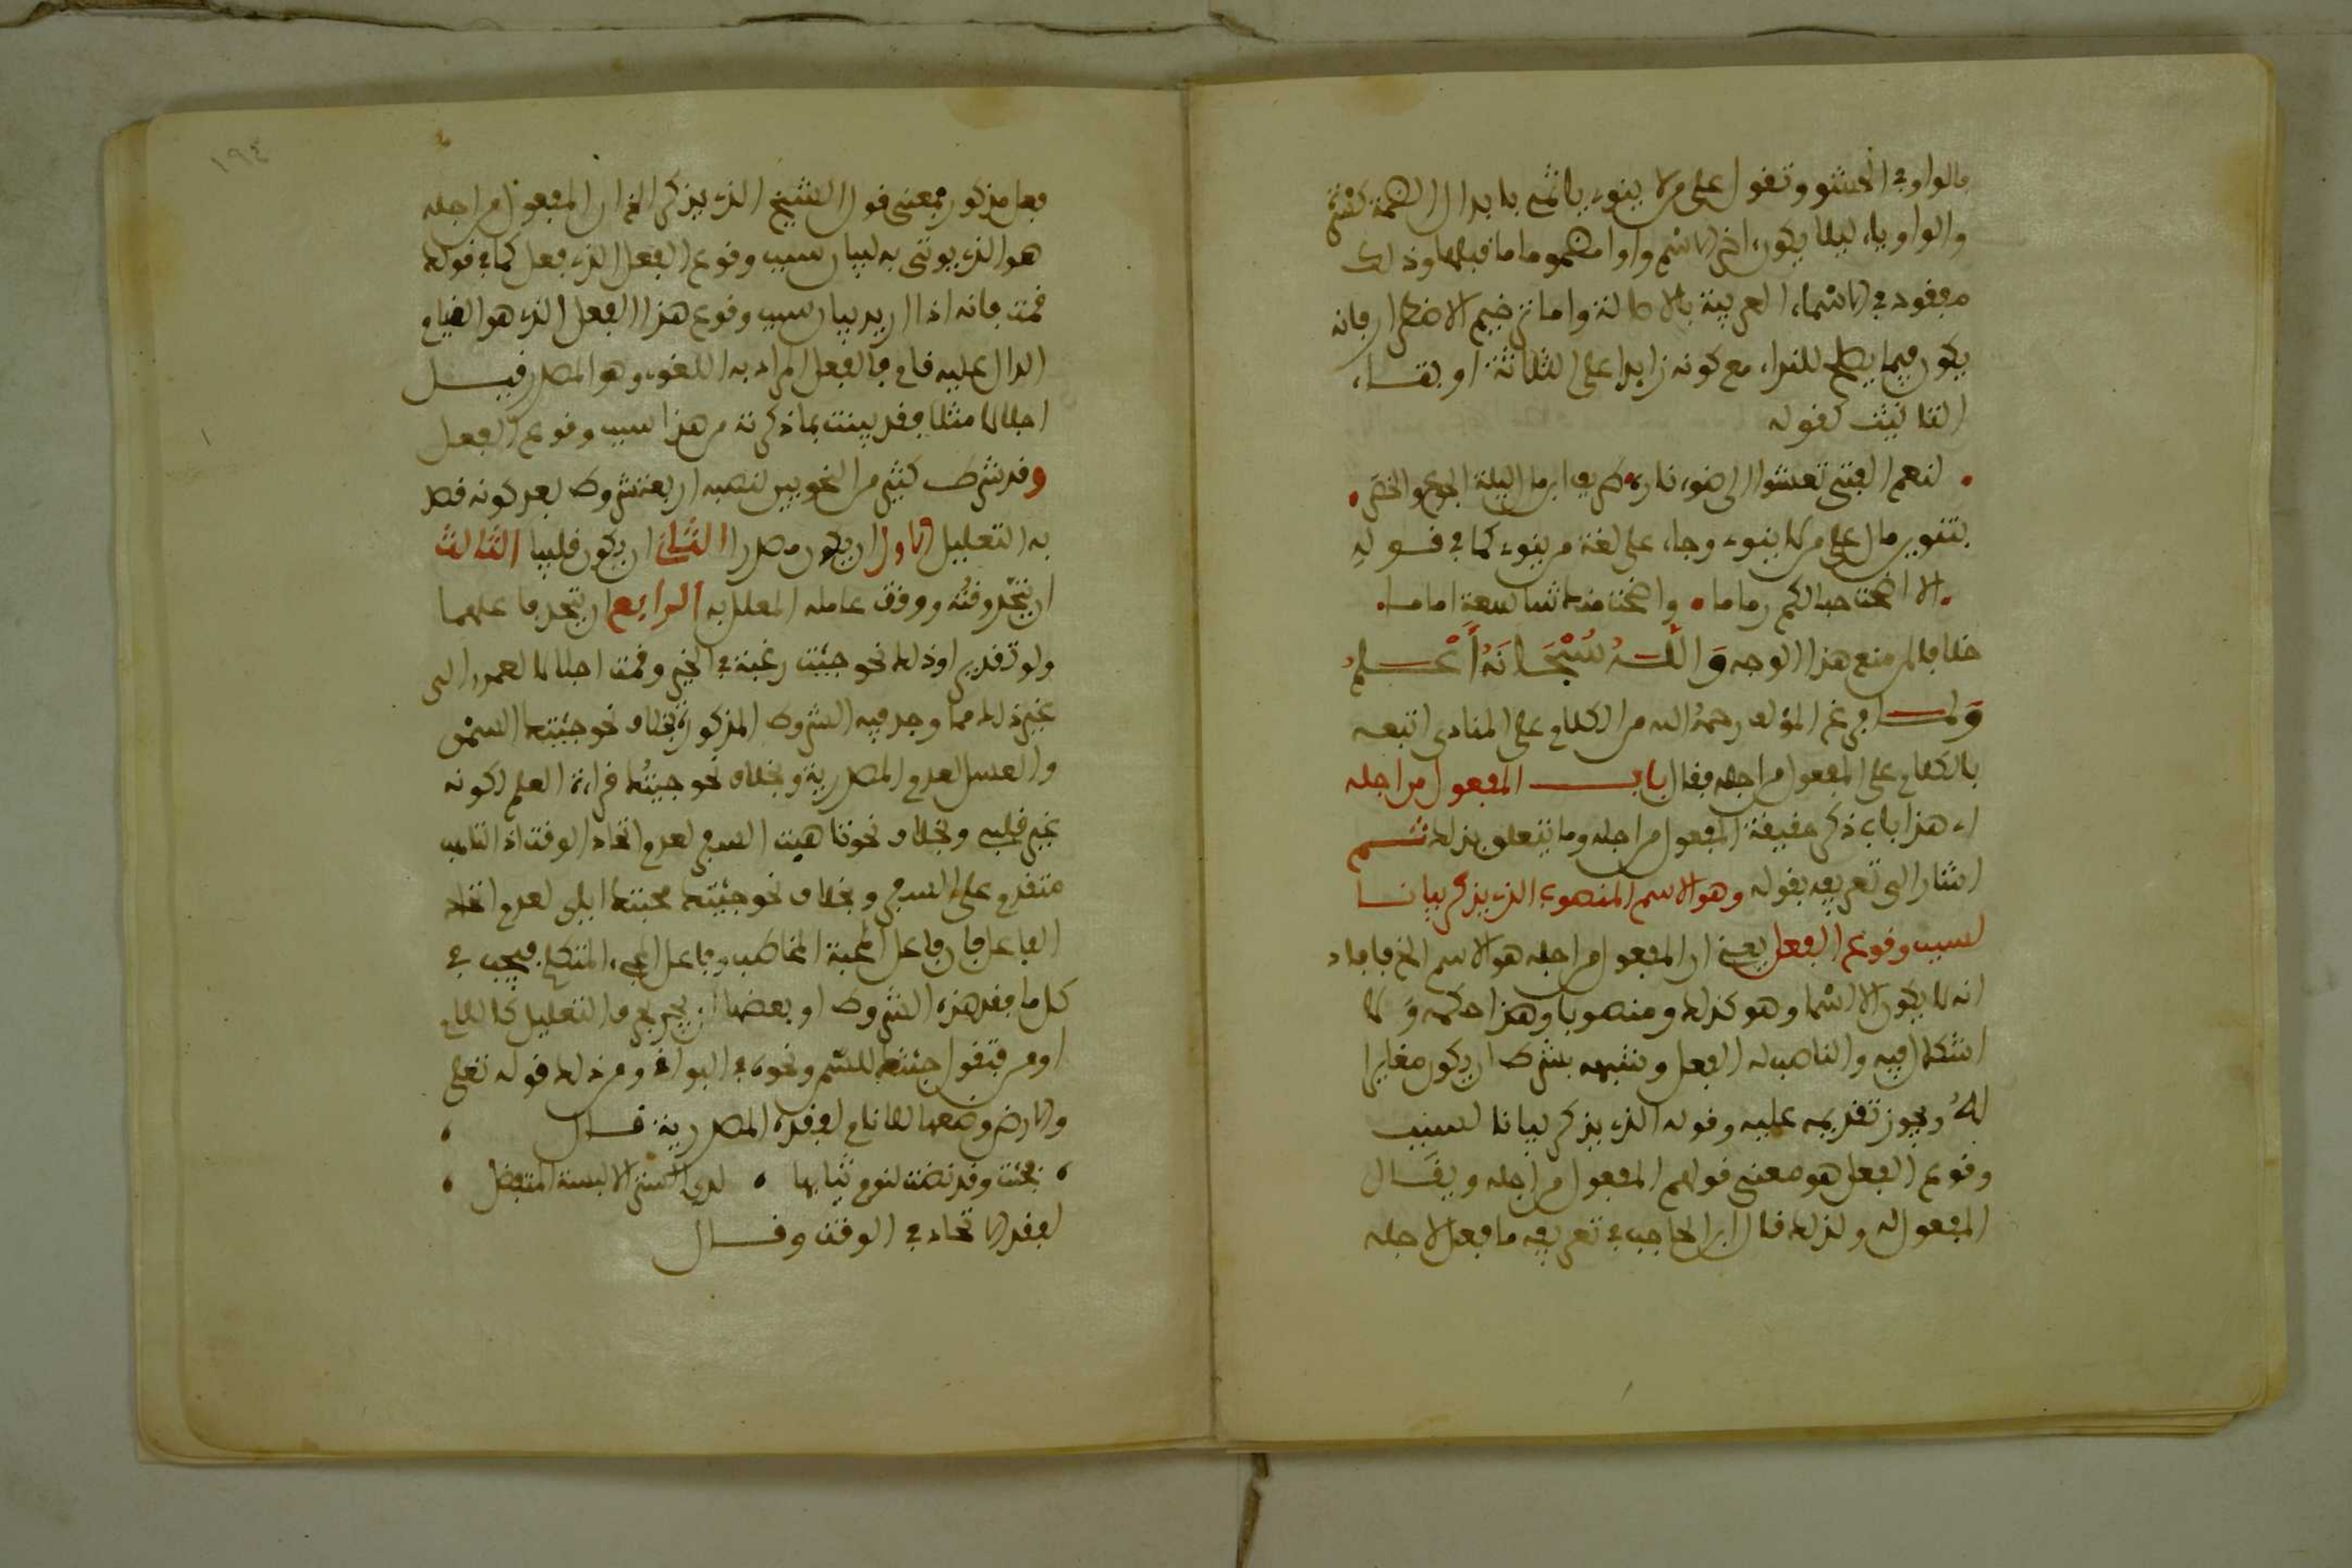 فالواو في الحشو وتقول على من لا ينوي يا ثمي بابدال الضمة كسرة
والواو ياء ليلا يكون اخر الاسم واوا مضموما ما قبلها وذلك
مفقود في الاسماء العربية بالاصالة واما ترخيم الاضطرار فانه
يكون فيما يصلح للنداء مع كونه زايدا على الثلاثة او بهاء
التانيث كقوله
لنعم الفتى تعشوا الى ضوء ناره طريف ابن مال ليلة الجوع والخصر
بتنوين مال على من لا ينوي وجاء على لغة من ينوي كما في قوله
الا اضحت حبالكم رماما واضحت منك شاسعة اماما
خلافا لمن منع هذا الوجه والله سبحانه أعلم
ولما فرغ المؤلف رحمه الله من الكلام على المنادى اتبعه
بالكلام على المفعول من اجله فقال باب المفعول من اجله
اي هذا باب ذكر حقيقة المفعول من اجله وما يتعلق بذلك ثم
اشار الى تعريفه بقوله وهو الاسم المنصوب الذي يذكر بيانا
لسبب وقوع الفعل يعني ان المفعول من اجله هو الاسم الخ فافاد
انه لا يكون الا اسما وهو كذلك ومنصوبا وهذا حكمه ولا
اشكال فيه والناصب له الفعل وشبهه بشرط ان يكون مغايرا
له ويجوز تقديمه عليه وقوله الذي يذكر بيانا لسبب
وقوع الفعل هو معنى قولهم المفعول من اجله ويقال
المفعول له ولذلك قال ابن الحاجب في تعريفه ما فعل لاجله
١٩٤
فعل مذكور فمعنى قول الشيخ الذي يذكر الخ ان المفعول من اجله
هو الذي يوتى به لبيان سبب وقوع الفعل الذي فعل كما في قوله
قمت فانه اذا اريد بيان سبب وقوع هذا الفعل الذي هو القيام
الدال عليه قام فالفعل المراد به اللغوي وهو المصدر قيل
اجلالا مثلا فقد بينت بما ذكرته من هذا سبب وقوع الفعل
وقد شرط كثير من النحويين لنصبه اربعة شروط بعد كونه قصد
به التعليل الاول ان يكون مصدرا الثاني ان يكون قلبيا الثالث
ان يتحد وقته ووقت عامله المعلل به الرابع ان يتحد فاعلهما
ولو تقديرا وذلك نحو جئت رغبة في الخير وقمت اجلالا لعمرو الى
غير ذلك مما وجد فيه الشروط المذكورة بخلاف نحو جئتك السمن
والعسل لعدم المصدرية وبخلاف نحو جئتك قراءة العلم لكونه
غير قلبي وبخلاف نحو تاهبت السفر لعدم اتحاد الوقت اذ التاهب
متقدم على السفر وبخلاف نحو جئتك محبتك اياي لعدم اتحاد
الفاعل فان فاعل المحبة المخاطب وفاعل المجيء المتكلم فيجب في
كل ما فقد هذه الشروط او بعضها ان يجر بحرف التعليل كاللام
او من فتقول جئتك للسمن ونحوه في البواقي ومن ذلك قوله تعلى
والارض وضعها للانام لفقده المصدرية قال
فجئت وقد نضت لنوم ثيابها لدى الستر الا لبسة المتفضل
لفقد الاتحاد في الوقت وقال